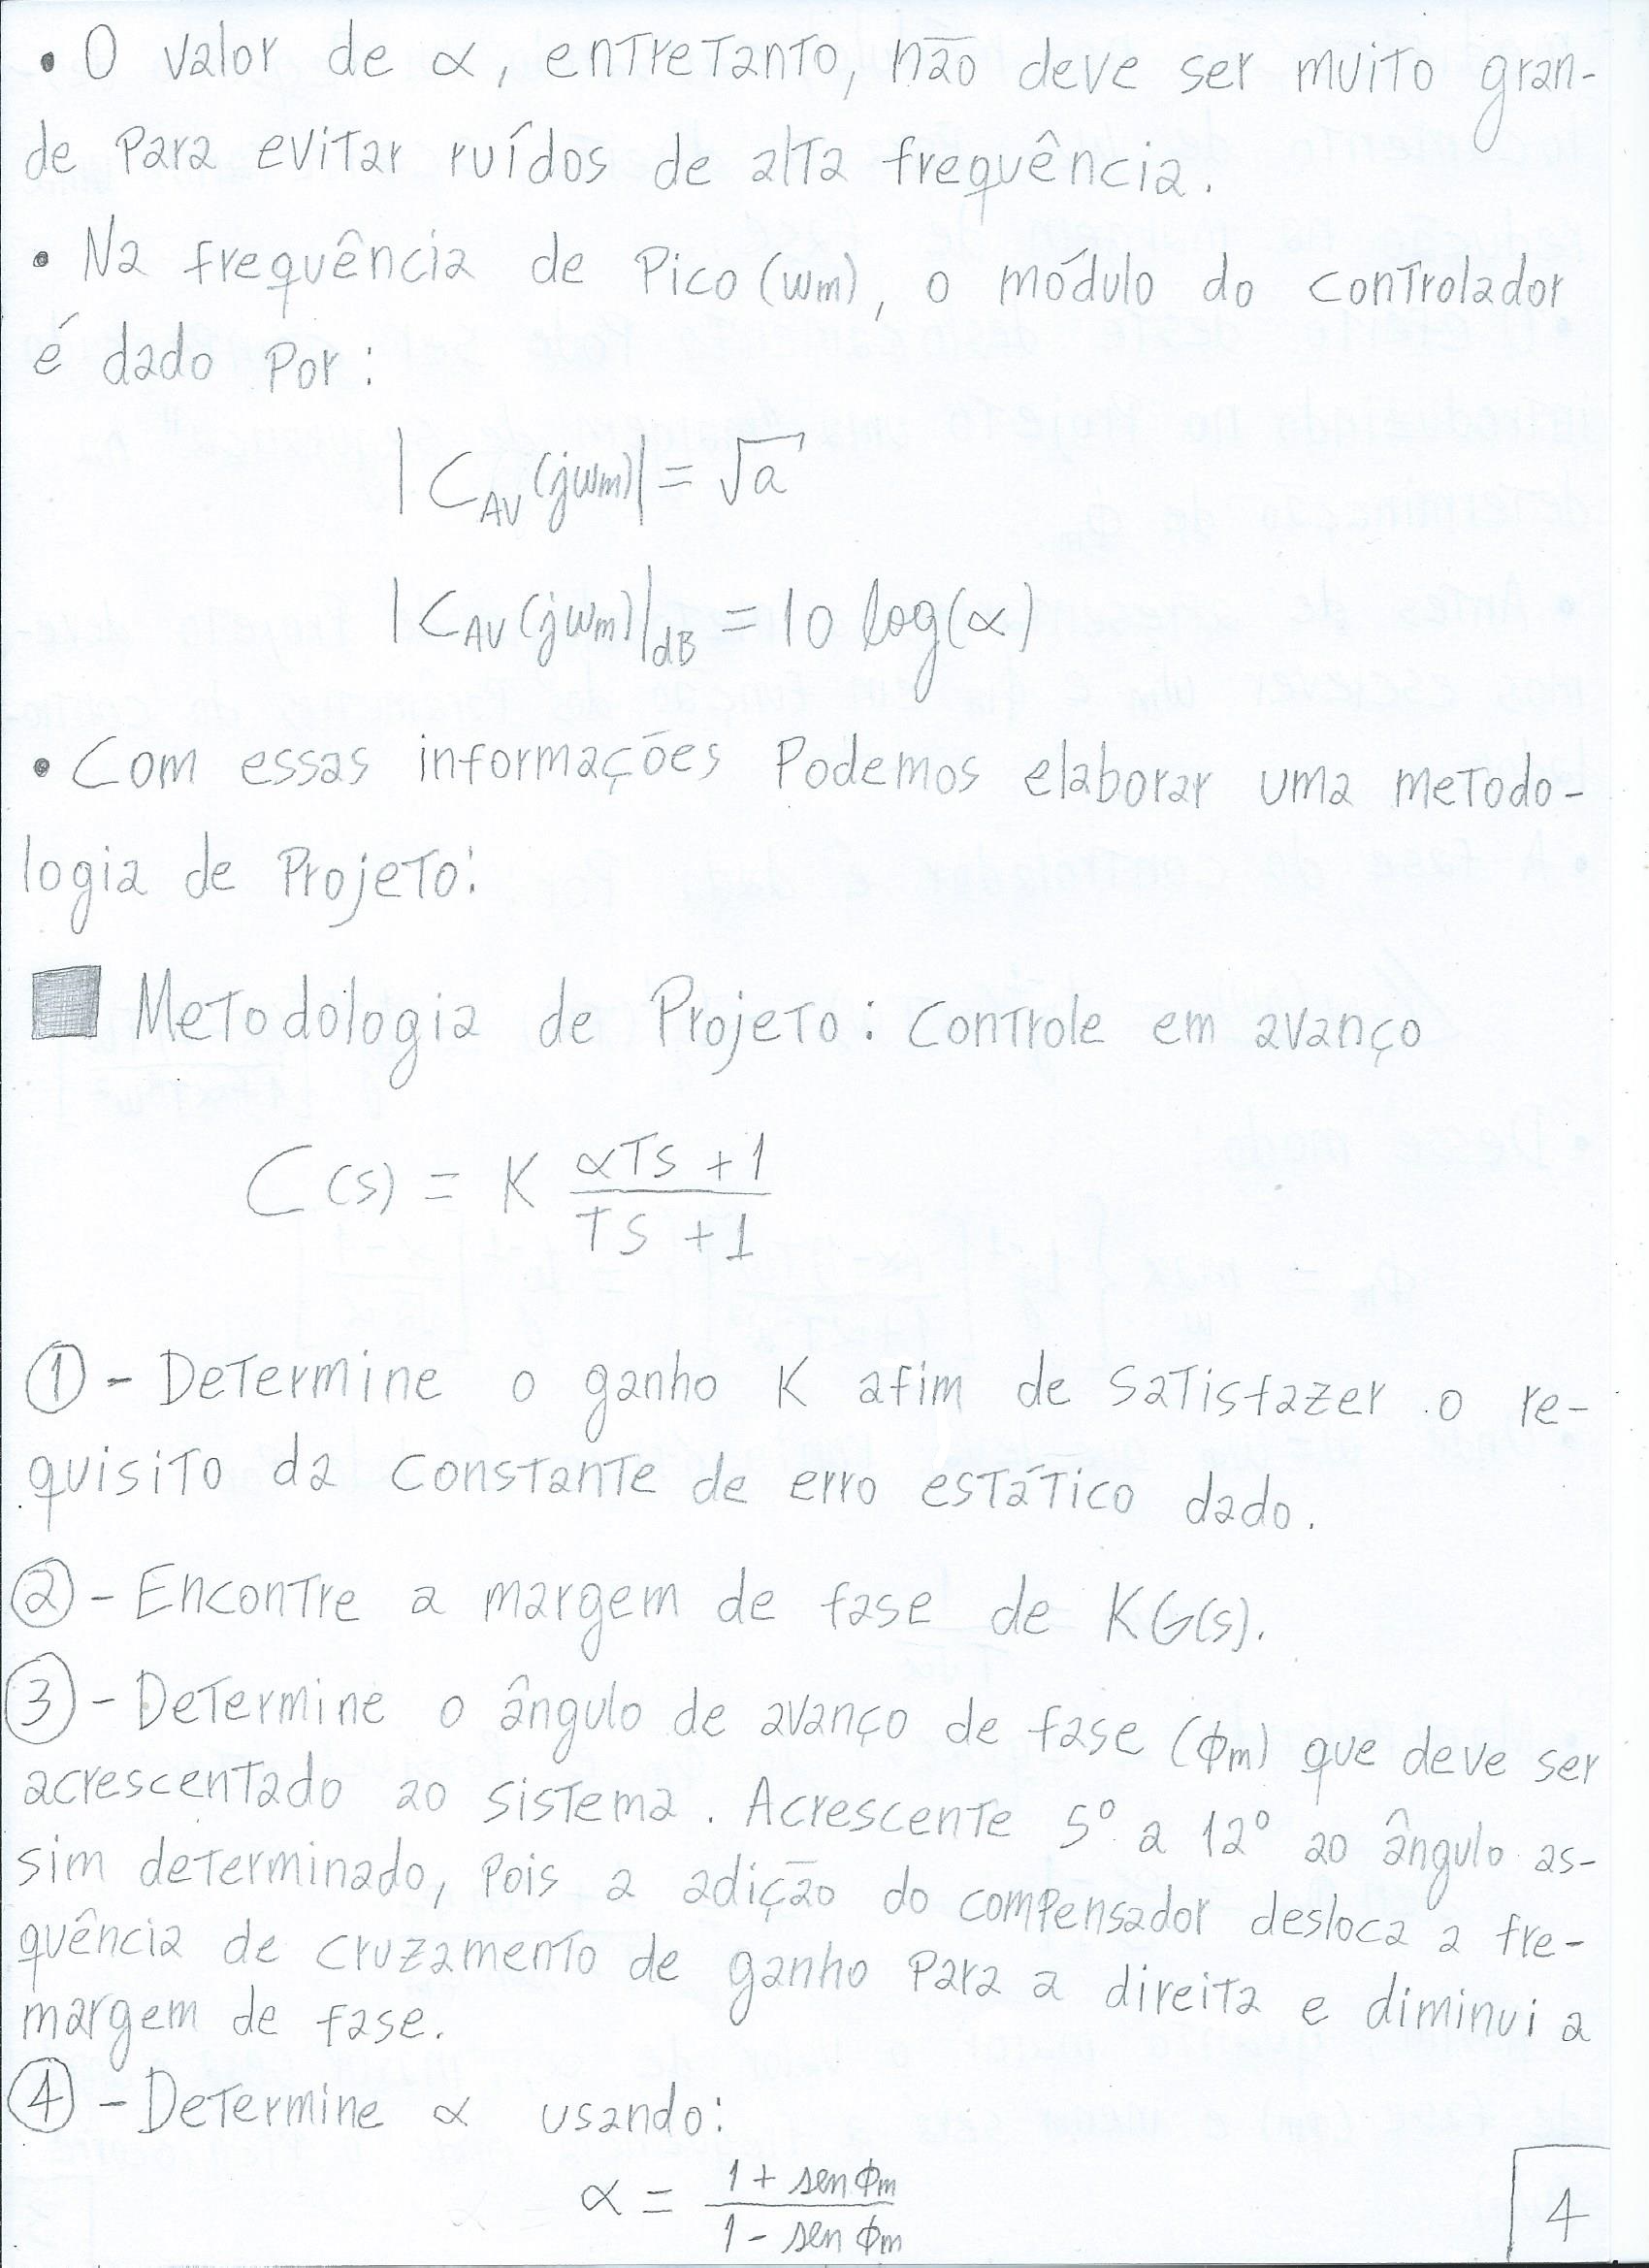 • O valor de α, entretanto, não deve ser muito gran-
de para evitar ruídos de alta frequência.
• Na frequência de pico (ωm), o módulo do controlador
é dado por:
|C_AV(jωm)| = √a
|C_AV(jωm)|_dB = 10 log(α)
• Com essas informações podemos elaborar uma metodo-
logia de projeto:
Metodologia de Projeto: controle em avanço
C(s) = K (αTs + 1)/(Ts + 1)
① - Determine o ganho K afim de satisfazer o re-
quisito da constante de erro estático dado.
② - Encontre a margem de fase de KG(s).
③ - Determine o ângulo de avanço de fase (φm) que deve ser
acrescentado ao sistema. Acrescente 5° a 12° ao ângulo as-
sim determinado, pois a adição do compensador desloca a fre-
quência de cruzamento de ganho para a direita e diminui a
margem de fase.
④ - Determine α usando:
α = (1 + sen φm)/(1 - sen φm)
4